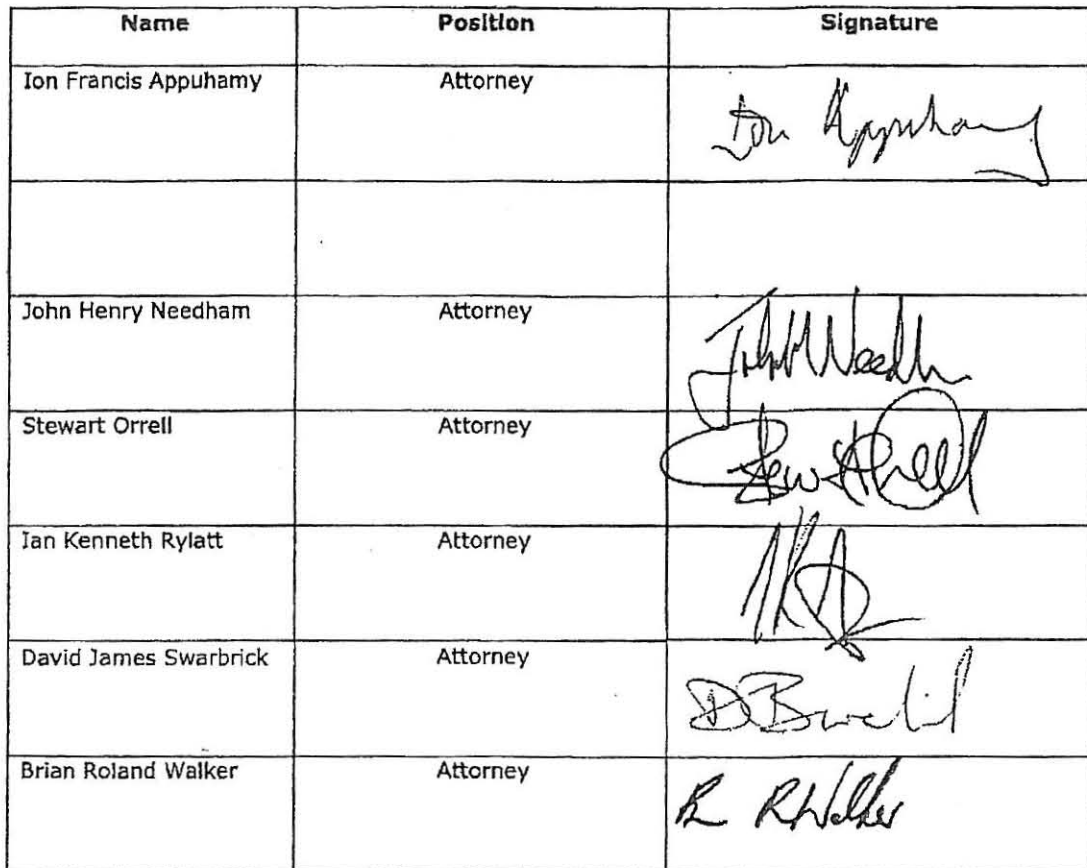 Name Position Signature
Ion Francis Appuhamy Attorney
Ion Appuhamy
John Henry Needham Attorney
Stewart Orrell Attorney
Stewart Orrell
Ian Kenneth Rylatt Attorney
David James Swarbrick Attorney
Brian Roland Walker Attorney
R Walker